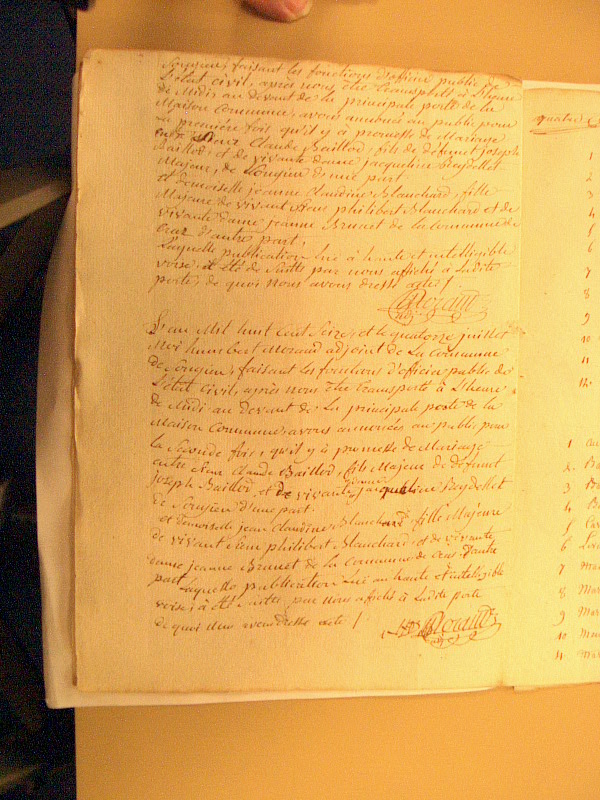 Songieu, faisant les fonctions d'officier public de
L'état civil, après nous être transporté à L'heure
de Midi au devant de la principale porte de la
Maison Commune, avons annoncés au public pour
la première fois, qu'il y à promesse de Mariage
entre Sieur Claude Baillod, fils de défunt joseph
Baillod, et de vivante dame jacqueline Beydellet
Majeur, de Songieu d'une part
et Demoiselle jeanne Claudine Blanchard, fille
Majeure de vivant Sieur philibert Blanchard et de
vivante dame jeanne Brunet de la Commune de
d'autre part,
Laquelle publication lue à haute et intelligible
voix, et été de Suitte par nous affiché à Ladite
porte, de quoi nous avons dressé acte /
Morand
adj.
L'an Mil huit Cent Seize, et le quatorze juillet
Moi humbert Morand adjoint de La Commune
de Songieu, faisant les fonctions d'officier public de
L'état Civil, après nous être transporté à L'heure
de Midi au devant de La principale porte de la
Maison Commune, avons annoncées au public pour
la Seconde fois, qu'il y à promesse de Mariage
entre Sieur Claude Baillod, fils Majeur de défunt
Joseph Baillod, et de vivante dame jacqueline Beydellet
de Songieu d'une part
et Demoiselle jeane Claudine Blanchard fille Majeure
de vivant Sieur philibert Blanchard et de vivante
dame jeanne Brunet de la Commune de d'autre
part Laquelle publication lue au haute et inteligible
voix, à été Suitte, par nous affiché à Ladite porte
de quoi nous avons dressé acte /
Morand
adj.
quatre
1
2
3
4
5
6
7
8
9
10
11
12
1
2
3
4
5
6
7
8 Mar
9 Mar
10
11